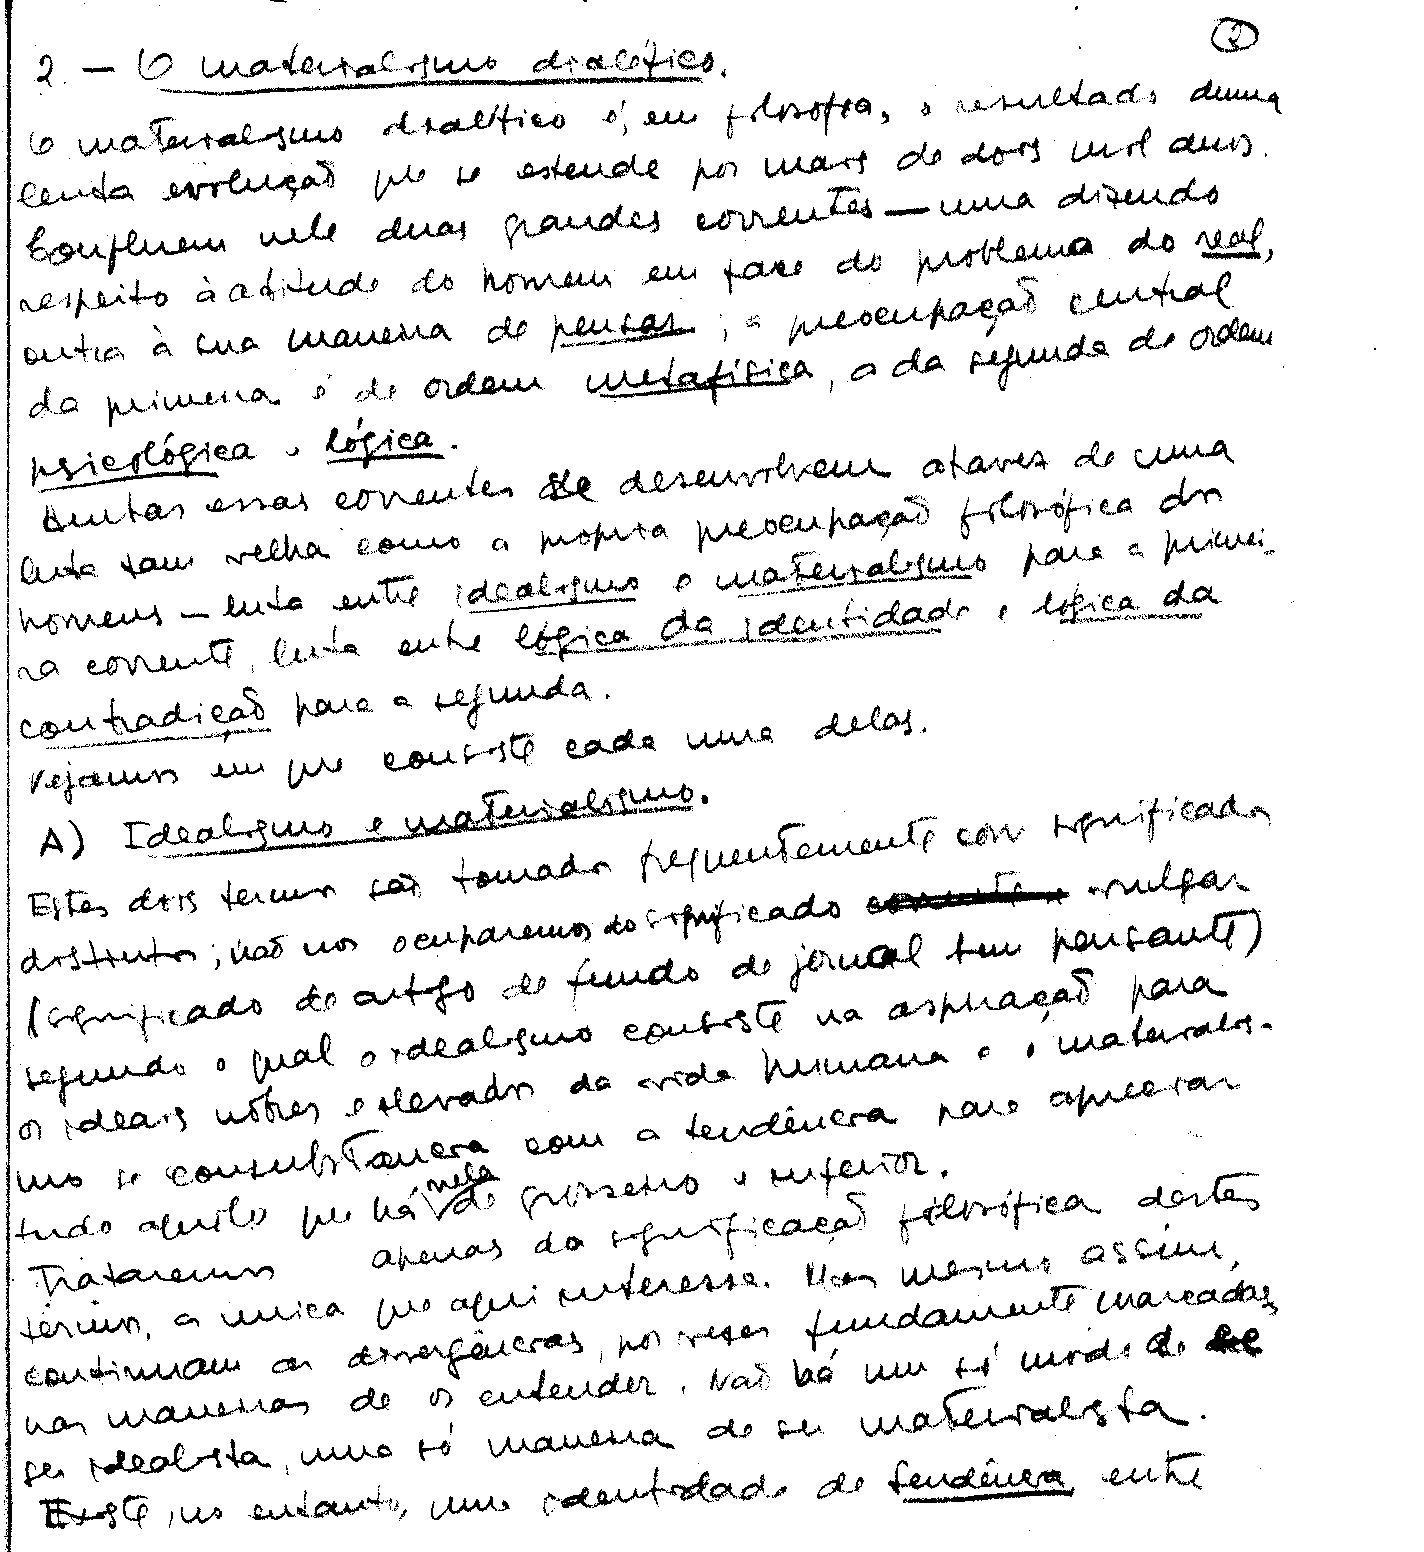 2
2. — O materialismo dialético.
O materialismo dialético é, em filosofia, o resultado duma
lenta evolução que se estende por mais de dois mil anos.
Confluem nele duas grandes correntes — uma dizendo
respeito à atitude do homem em face do problema do real,
outra à sua maneira de pensar; a preocupação central
da primeira é de ordem metafísica, a da segunda de ordem
psicológica e lógica.
Ambas essas correntes se desenvolvem através de uma
luta tam velha como a propria preocupação filosófica dos
homens — luta entre idealismo e materialismo para a primei-
ra corrente, luta entre lógica da identidade e lógica da
contradição para a segunda.
Vejamos em que consiste cada uma delas.
A) Idealismo e materialismo.
Estes dois termos são tomados frequentemente com significados
distintos; não nos ocuparemos do significado vulgar
(significado de artigo de fundo de jornal bem pensante)
segundo o qual o idealismo consiste na aspiração para
os ideais nobres e elevados da vida humana e o materialis-
mo se consubstancia com a tendência para apreciar
tudo aquilo que há nela de grosseiro e inferior.
Trataremos apenas da significação filosófica destes
têrmos, a unica que aqui interessa. Mas mesmo assim,
continuam as divergências, por vezes fundamente marcadas,
nas maneiras de os entender. Não há um só modo de
ser idealista, uma só maneira de ser materialista.
Existe, no entanto, uma identidade de tendência entre